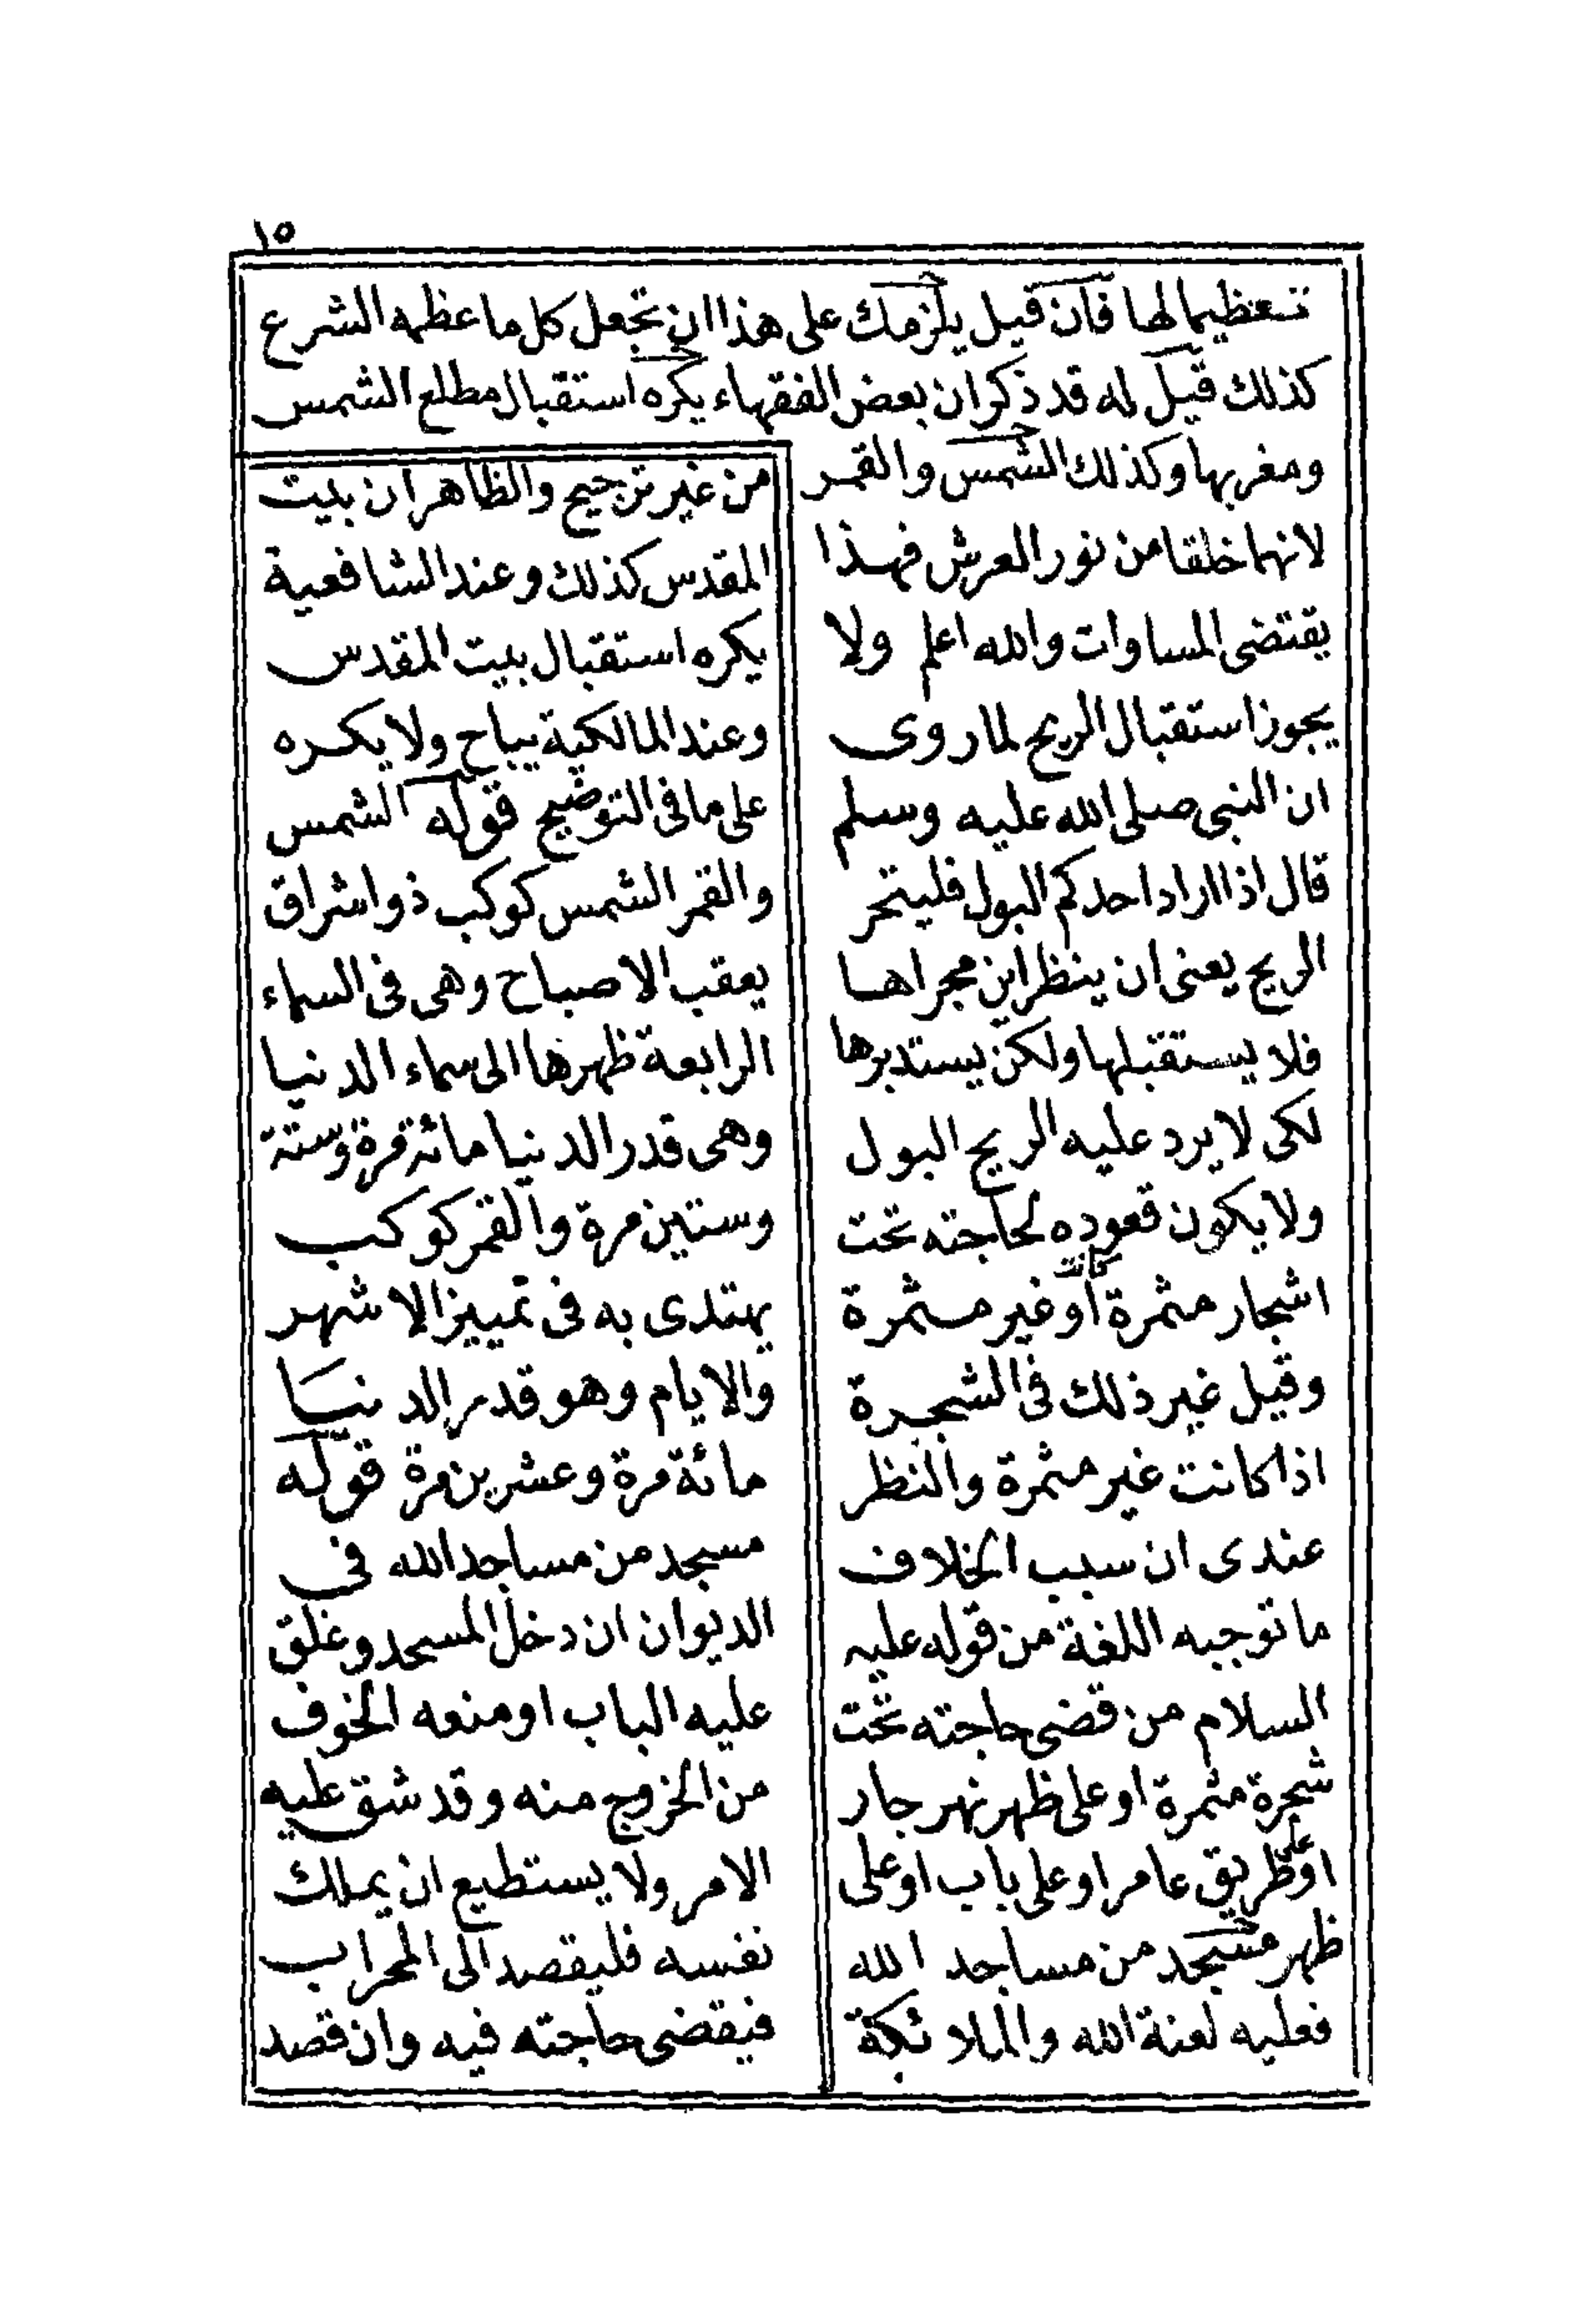 ١٥
تعظيما لها فان قيل يلزمك على هذا ان تجعل كل ما عظمه الشرع
كذلك قيل له قد ذكر ان بعض الفقهاء يكره استقبال مطلع الشمس
ومغربها وكذلك الشمس والقمر
لانهما خلقا من نور العرش فهذا
يقتضى المساوات والله اعلم ولا
يجوز استقبال الريح لما روى
ان النبى صلى الله عليه وسلم
قال اذا اراد احدكم البول فليتخر
الريح يعنى ان ينظر اين مجراها
فلا يستقبلها ولكن يستدبرها
لكى لا يرد عليه الريح البول
ولا يكون قعوده لحاجته تحت
اشجار مثمرة كانت او غير مثمرة
وقيل غير ذلك فى الشجرة
اذا كانت غير مثمرة والنظر
عندى ان سبب الخلاف
ما توجبه اللغة من قوله عليه
السلام من قضى حاجته تحت
شجرة مثمرة او على ظهر نهر جار
او على طريق عامر او على باب او على
ظهر مسجد من مساجد الله
فعليه لعنة الله والملائكة
من غير ترجيح والظاهر ان بيت
المقدس كذلك وعند الشافعية
يكره استقبال بيت المقدس
وعند المالكية يباح ولا يكره
على ما فى التوضيح قوله الشمس
والقمر الشمس كوكب ذو اشراق
يعقب الاصباح وهى فى السماء
الرابعة ظهرها الى سماء الدنيا
وهى قدر الدنيا مائة مرة وستة
وستين مرة والقمر كوكب
يهتدى به فى تمييز الاشهر
والايام وهو قدر الدنيا
مائة مرة وعشرين مرة قوله
مسجد من مساجد الله فى
الديوان ان دخل المسجد وغلق
عليه الباب او منعه الخوف
من الخروج منه وقد شق عليه
الامر ولا يستطيع ان يملك
نفسه فليقصد الى المحراب
فيقضى حاجته فيه وان قصد